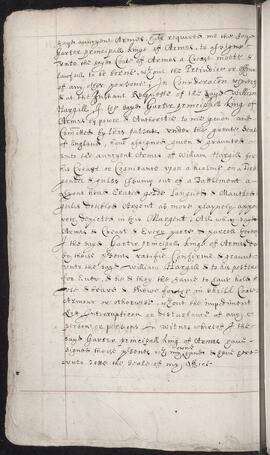 sayd auncyent Armes hath required me the sayd
Garter principall king of Armes, to assigne
unto the sayd Coate of Armes a Creast meete &
lawfull to be borne, without the Prejudice or offence
of any other persons, In Consideracon whereof
& at the Instant Requeste of the sayd William
Hargill I the sayd Garter principall king of
Armes by power & Authoritie to me given and
Comitted by lres patents under the greate Seale
of England, have assigned given & graunted
unto the auncyent Armes of William Hargill for
his Creast or Cognizance upon a healme on a
gould & gules issuing out of a
head Erased gould Langued &
gules doubled Argent as more playnly
depicted in this Margent, All which sayd
Armes & Creast & Every parte & parcell thereof
I the sayd Garter principall king of Armes do
by these presents ratifie Confirme & graunt
unto the sayd William Hargill & to his posteritie
for Ever, & he & they the same to
& Shewe for ever in Shield Coate
Armour or otherwise, without the impediment
Lett Interruption or disturbance of any
person or persons In witnes whereof I the
sayd Garter principall king of Armes have
signed these presents with my owne hand &
unto Sett the Seale of my Office